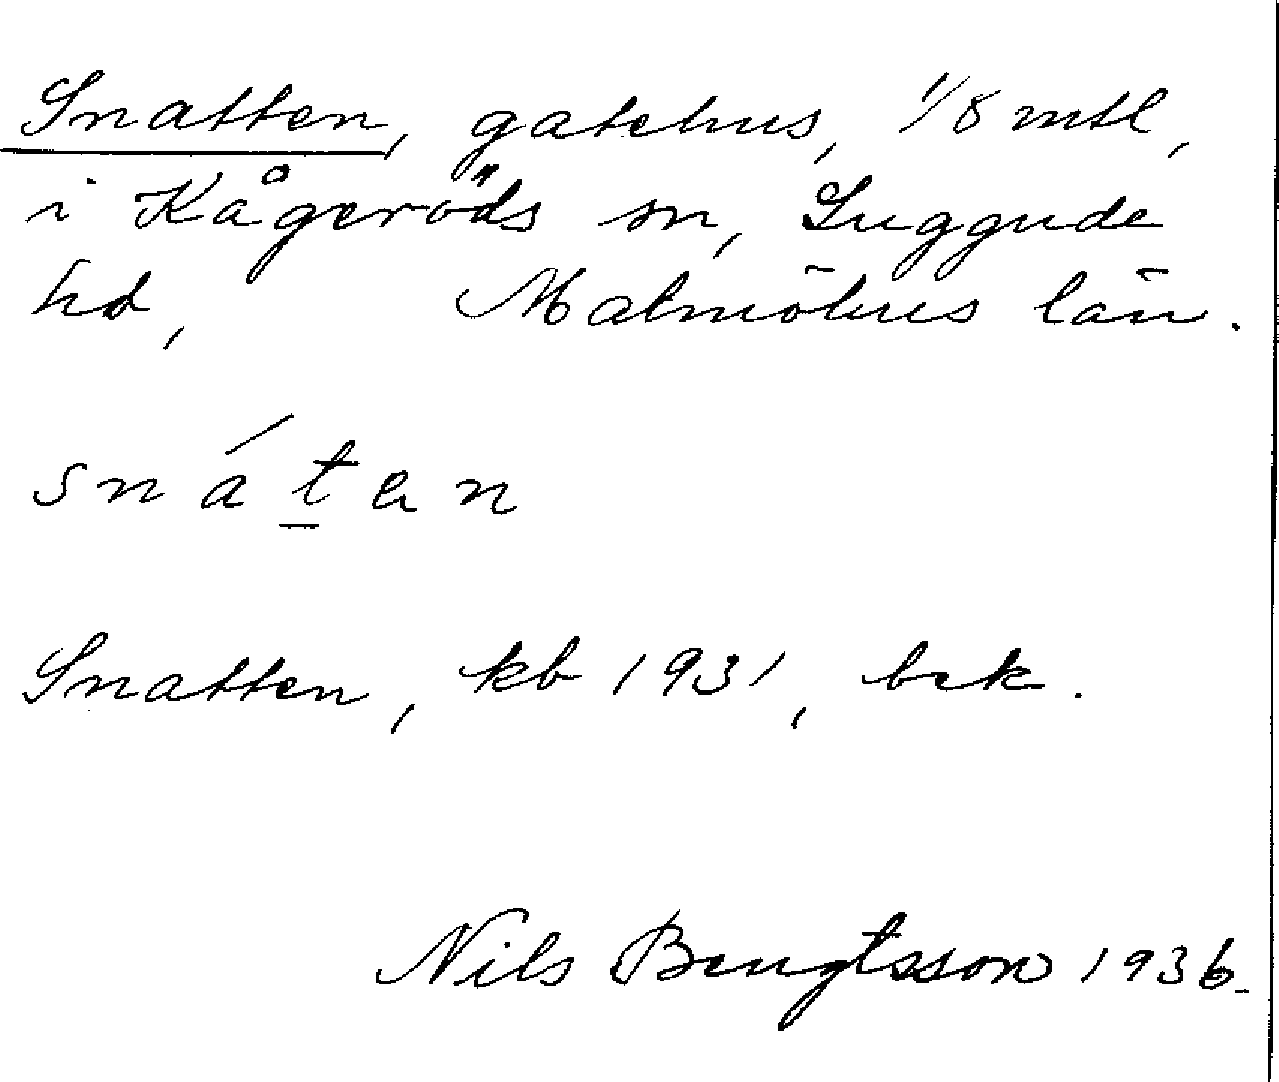 Snatten, gatehus, 1/8 mtl,
i Kågeröds sn, Luggude
hd, Malmöhus län.
snáṯen
Snatten, kb 1931, bek.
Nils Bengtsson 1936.